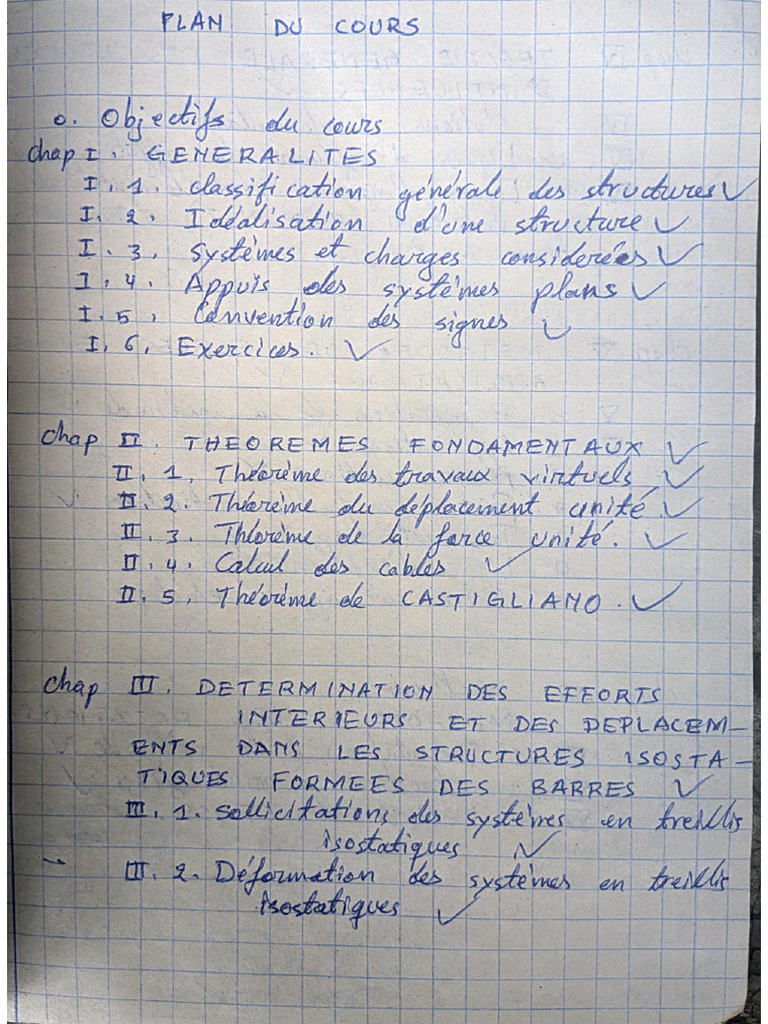 PLAN DU COURS
0. Objectifs du cours
Chap I. GENERALITES
I. 1. classification générale des structures ✓
I. 2. Idéalisation d'une structure ✓
I. 3. Systèmes et charges considerées ✓
I. 4. Appuis des systèmes plans ✓
I. 5. Convention des signes ✓
I. 6. Exercices. ✓
Chap II. THEOREMES FONDAMENTAUX ✓
II. 1. Théorème des travaux virtuels ✓
II. 2. Théorème du déplacement unité. ✓
II. 3. Théorème de la force unité. ✓
II. 4. Calcul des cables ✓
II. 5. Théorème de CASTIGLIANO. ✓
Chap III. DETERMINATION DES EFFORTS
INTERIEURS ET DES DEPLACEM-
ENTS DANS LES STRUCTURES ISOSTA-
TIQUES FORMEES DES BARRES ✓
III. 1. Sollicitations des systèmes en treillis
isostatiques ✓
III. 2. Déformation des systèmes en treillis
isostatiques ✓